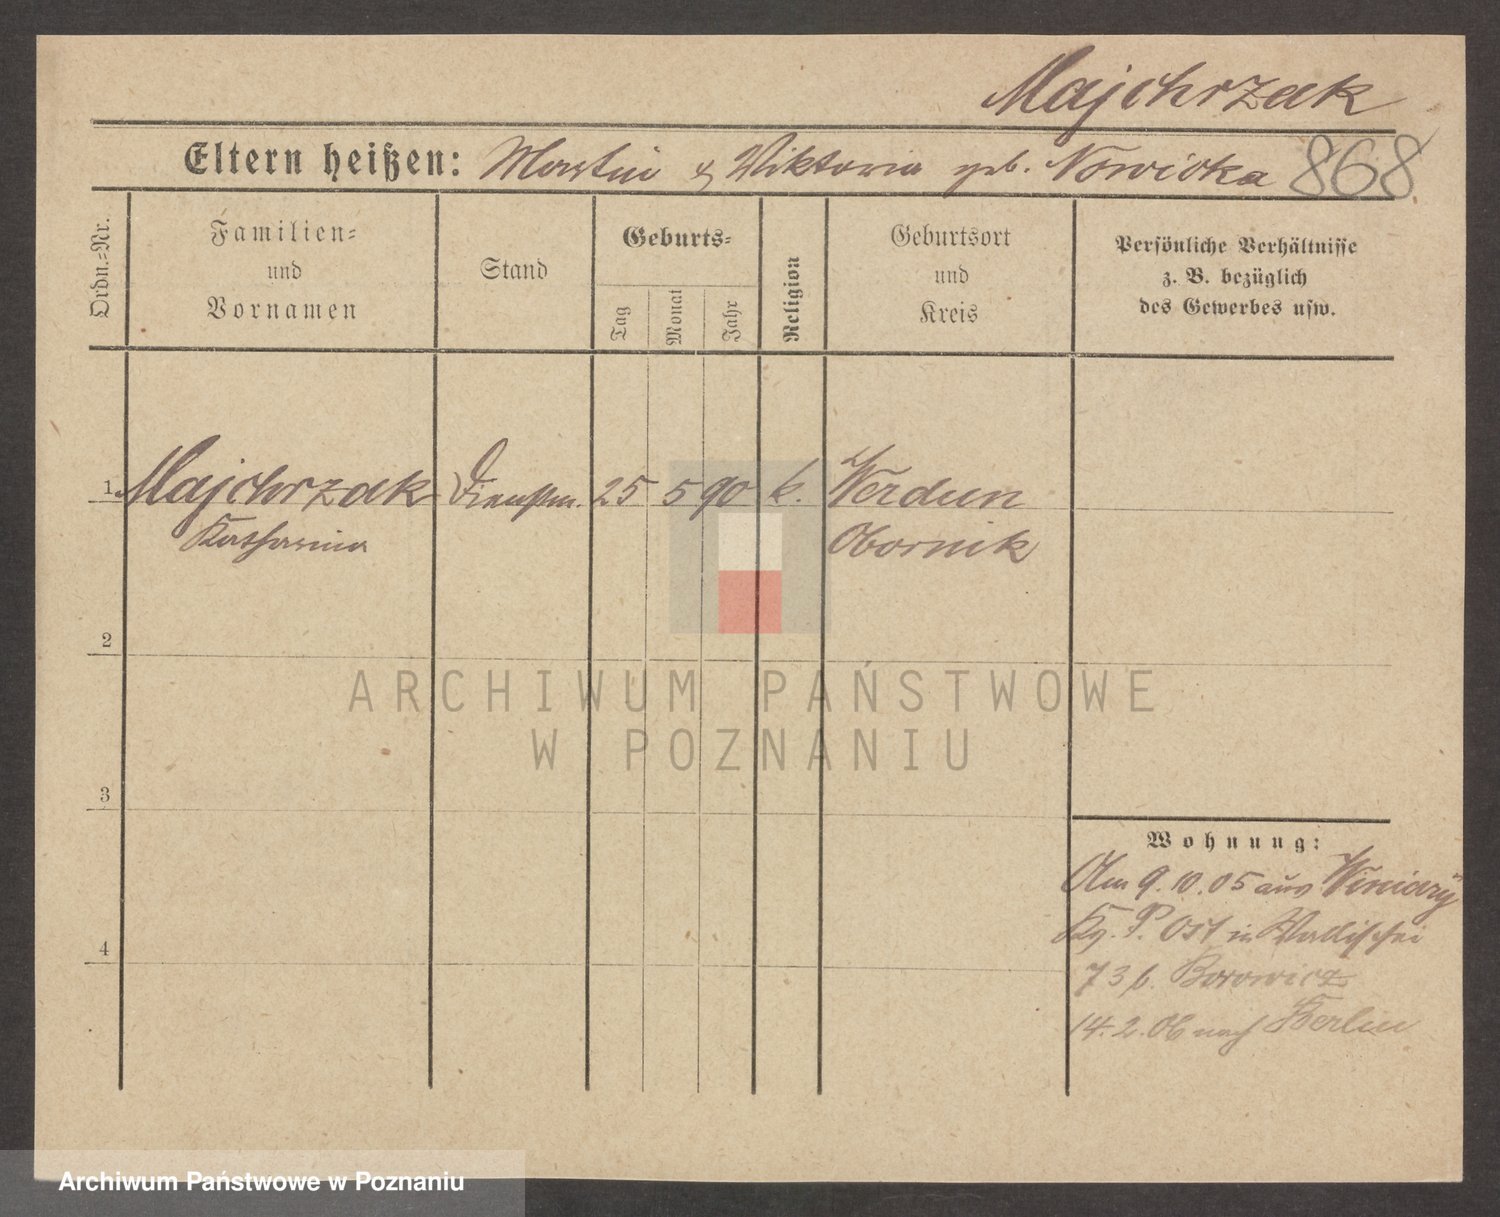 Majchrzak
Eltern heißen: Martin & Viktoria geb. Nowicka 868
Ordn.-Nr.
Familien-
und
Vornamen
Stand
Geburts-
Tag
Monat
Jahr
Religion
Geburtsort
und
Kreis
Persönliche Verhältnisse
z. B. bezüglich
des Gewerbes usw.
1 Majchrzak Dienstm. 25 5 90 k. Werdum
Katharina Obornik
2
3
4
Wohnung:
Am 9.10.05 aus Winiary
Kr. P. Ost in Wallischei
73 b. Borowicz
14.2.06 nach Berlin
ARCHIWUM PAŃSTWOWE
W POZNANIU
Archiwum Państwowe w Poznaniu